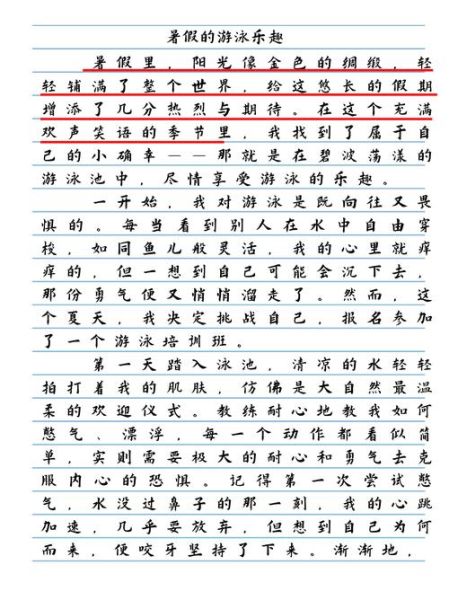 暑假的游泳乐趣
暑假里，阳光像金色的绸缎，轻
轻铺满了整个世界，给这悠长的假期
增添了几分热烈与期待。在这个充满
欢声笑语的季节里，我找到了属于自
己的小确幸——那就是在碧波荡漾的
游泳池中，尽情享受游泳的乐趣。
一开始，我对游泳是既向往又畏
惧的。每当看到别人在水中自由穿
梭，如同鱼儿般灵活，我的心里就痒
痒的，但一想到自己可能会沉下去，
那份勇气便又悄悄溜走了。然而，这
个夏天，我决定挑战自己，报名参加
了一个游泳培训班。
第一天踏入泳池，清凉的水轻轻
拍打着我的肌肤，仿佛是大自然最温
柔的欢迎仪式。教练耐心地教我如何
憋气、漂浮，每一个动作都看似简
单，实则需要极大的耐心和勇气去克
服内心的恐惧。记得第一次尝试憋
气，水没过鼻子的那一刻，我的心跳
加速，几乎要放弃，但想到自己为何
而来，便咬牙坚持了下来。渐渐地，